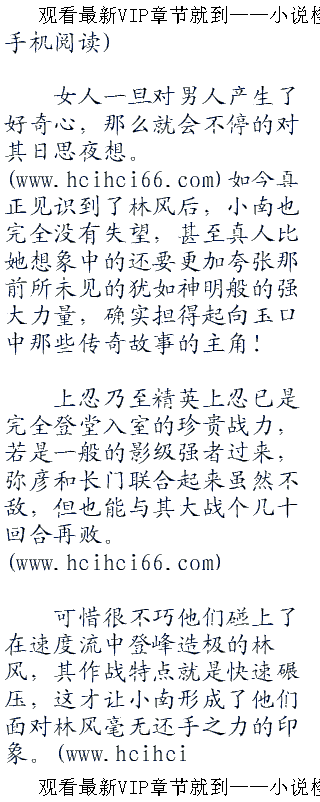 观看最新VIP章节就到——小说检
手机阅读)
女人一旦对男人产生了
好奇心，那么就会不停的对
其日思夜想。
(www.hcihci66.com)如今真
正见识到了林风后，小南也
完全没有失望，甚至真人比
她想象中的还要更加夸张那
前所未见的犹如神明般的强
大力量，确实担得起向玉口
中那些传奇故事的主角！
上忍乃至精英上忍已是
完全登堂入室的珍贵战力，
若是一般的影级强者过来，
弥彦和长门联合起来虽然不
敌，但也能与其大战个几十
回合再败。
(www.hcihci66.com)
可惜很不巧他们碰上了
在速度流中登峰造极的林
风，其作战特点就是快速碾
压，这才让小南形成了他们
面对林风毫无还手之力的印
象。(www.hcihci
观看最新VIP章节就到——小说检